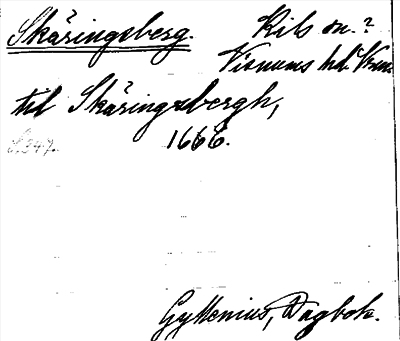 Skäringsberg. Kils sn.?
Visnums hd. Vrm.
till Skäringsbergh,
1666.
S. 347.
Gyllenius, Dagbok.